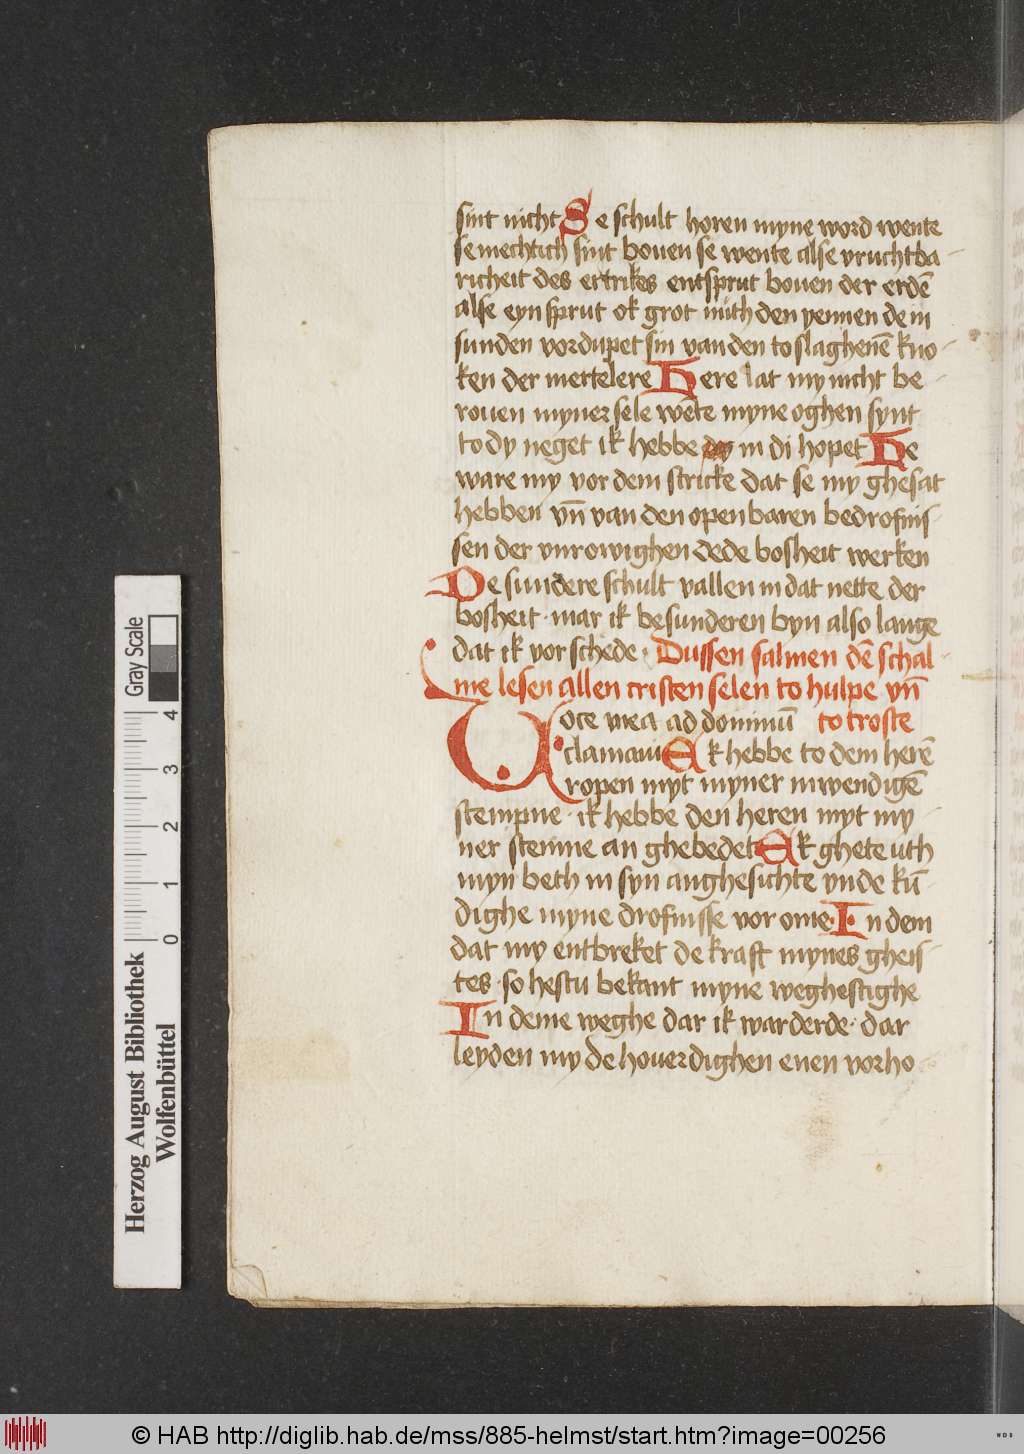 sint nicht Se schult horen myne word wente
se mechtich sint bouen se wente alse vruchtba-
richeit des ertrikes entsprut bouen der erdē
alse eyn sprut ok grot mith den yennen de in
sunden vordupet sin van den to slaghenē kno-
ken der mertelere Here lat my nicht be-
rouen myner sele wēte myne oghen synt
to dy neget ik hebbe in di hopet Be
ware my vor dem stricke dat se my ghesat
hebben vn̄ van den openbaren bedrofnis-
sen der vnrowighen de de bosheit werken
De sundere schult vallen in dat nette der
bosheit · mar ik besunderen byn also lange
dat ik vorschede · Dussen salmen dē schal-
me lesen allen cristen selen to hulpe vn̄
to troste
Uoce mea ad dominū
clamaui Ek hebbe to dem herē
ropen myt myner inwendigē
stempne · ik hebbe den heren myt my-
ner stemme an ghebedet Ek ghete uth
myn beth in syn anghesichte vnde kū-
dighe myne drofnisse vor ome · In dem
dat my entbreket de kraft mynes gheis-
tes · so hestu bekant myne weghestighe
In deme weghe dar ik warderde · dar
leyden my de houerdighen enen vorho-
Herzog August Bibliothek
Wolfenbüttel
Gray Scale
0 1 2 3 4
© HAB http://diglib.hab.de/mss/885-helmst/start.htm?image=00256
WDB